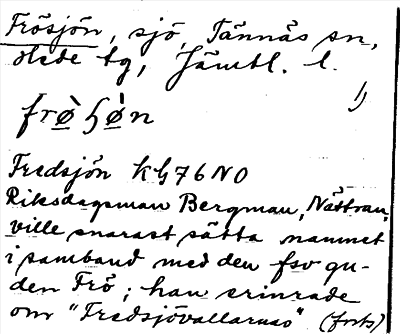 Frösjön, sjö, Tännäs sn,
Hede tg, Jämtl. l.
1)
frø̀ʃø̀n
Fredsjön KG76NO
Riksdagsman Bergman, Nästvan,
ville snarast sätta namnet
i samband med den fsv gu-
den Frö; han erinrade
om "Fredsjövallarnas" (forts)